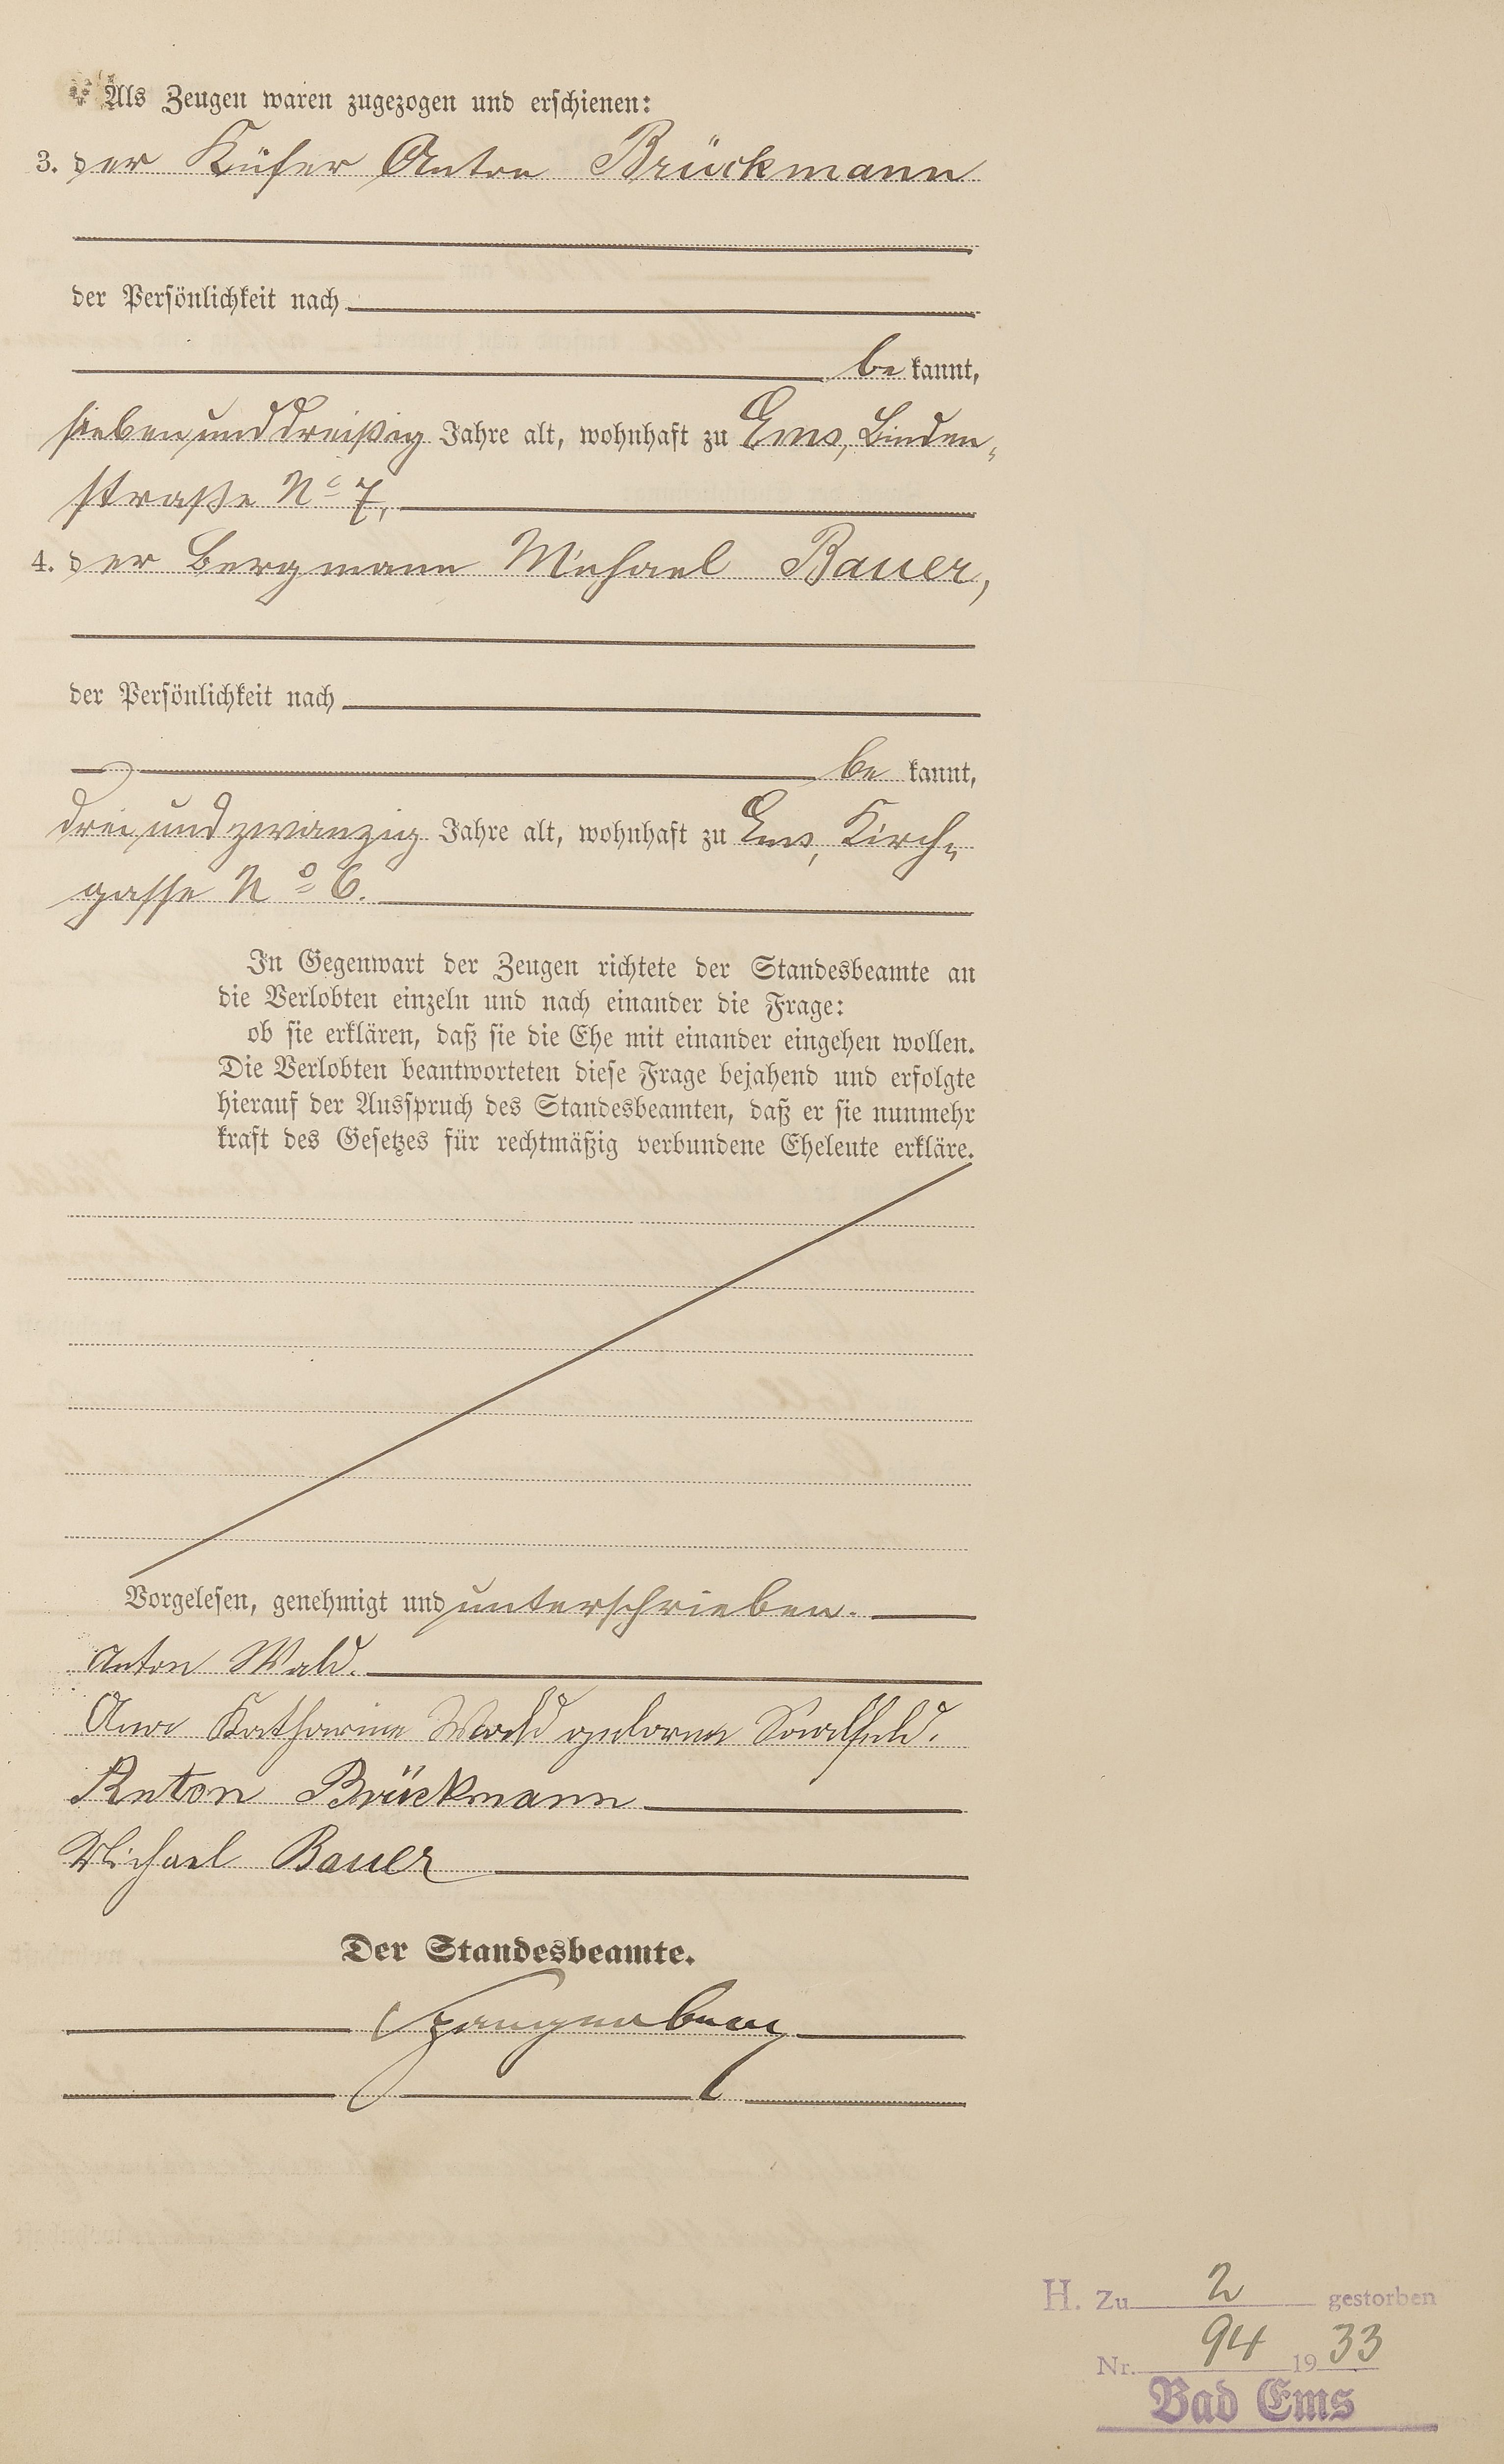 Als Zeugen waren zugezogen und erschienen:
3. der Küfer Anton Brückmann
der Persönlichkeit nach
be kannt,
siebenunddreißig Jahre alt, wohnhaft zu Ems, Linden-
straße No 7,
4. der Bergmann Michael Bauer,
der Persönlichkeit nach
be kannt,
dreiundzwanzig Jahre alt, wohnhaft zu Ems, Kirch-
gasse No 6.
In Gegenwart der Zeugen richtete der Standesbeamte an
die Verlobten einzeln und nach einander die Frage:
ob sie erklären, daß sie die Ehe mit einander eingehen wollen.
Die Verlobten beantworteten diese Frage bejahend und erfolgte
hierauf der Ausspruch des Standesbeamten, daß er sie nunmehr
kraft des Gesetzes für rechtmäßig verbundene Eheleute erkläre.
Vorgelesen, genehmigt und unterschrieben.
Anton Wald.
Anna Katharina Wald geborene Saalfeld.
Anton Brückmann
Michael Bauer
Der Standesbeamte.
Spangenberg
H. Zu 2 gestorben
Nr. 94 1933
Bad Ems